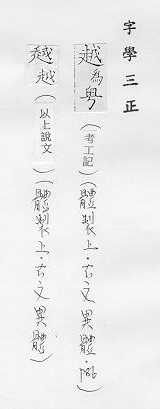 字學三正
越為粵（考工記）（體製上·古文異體·P86）
越（以上說文）（體製上·古文異體）